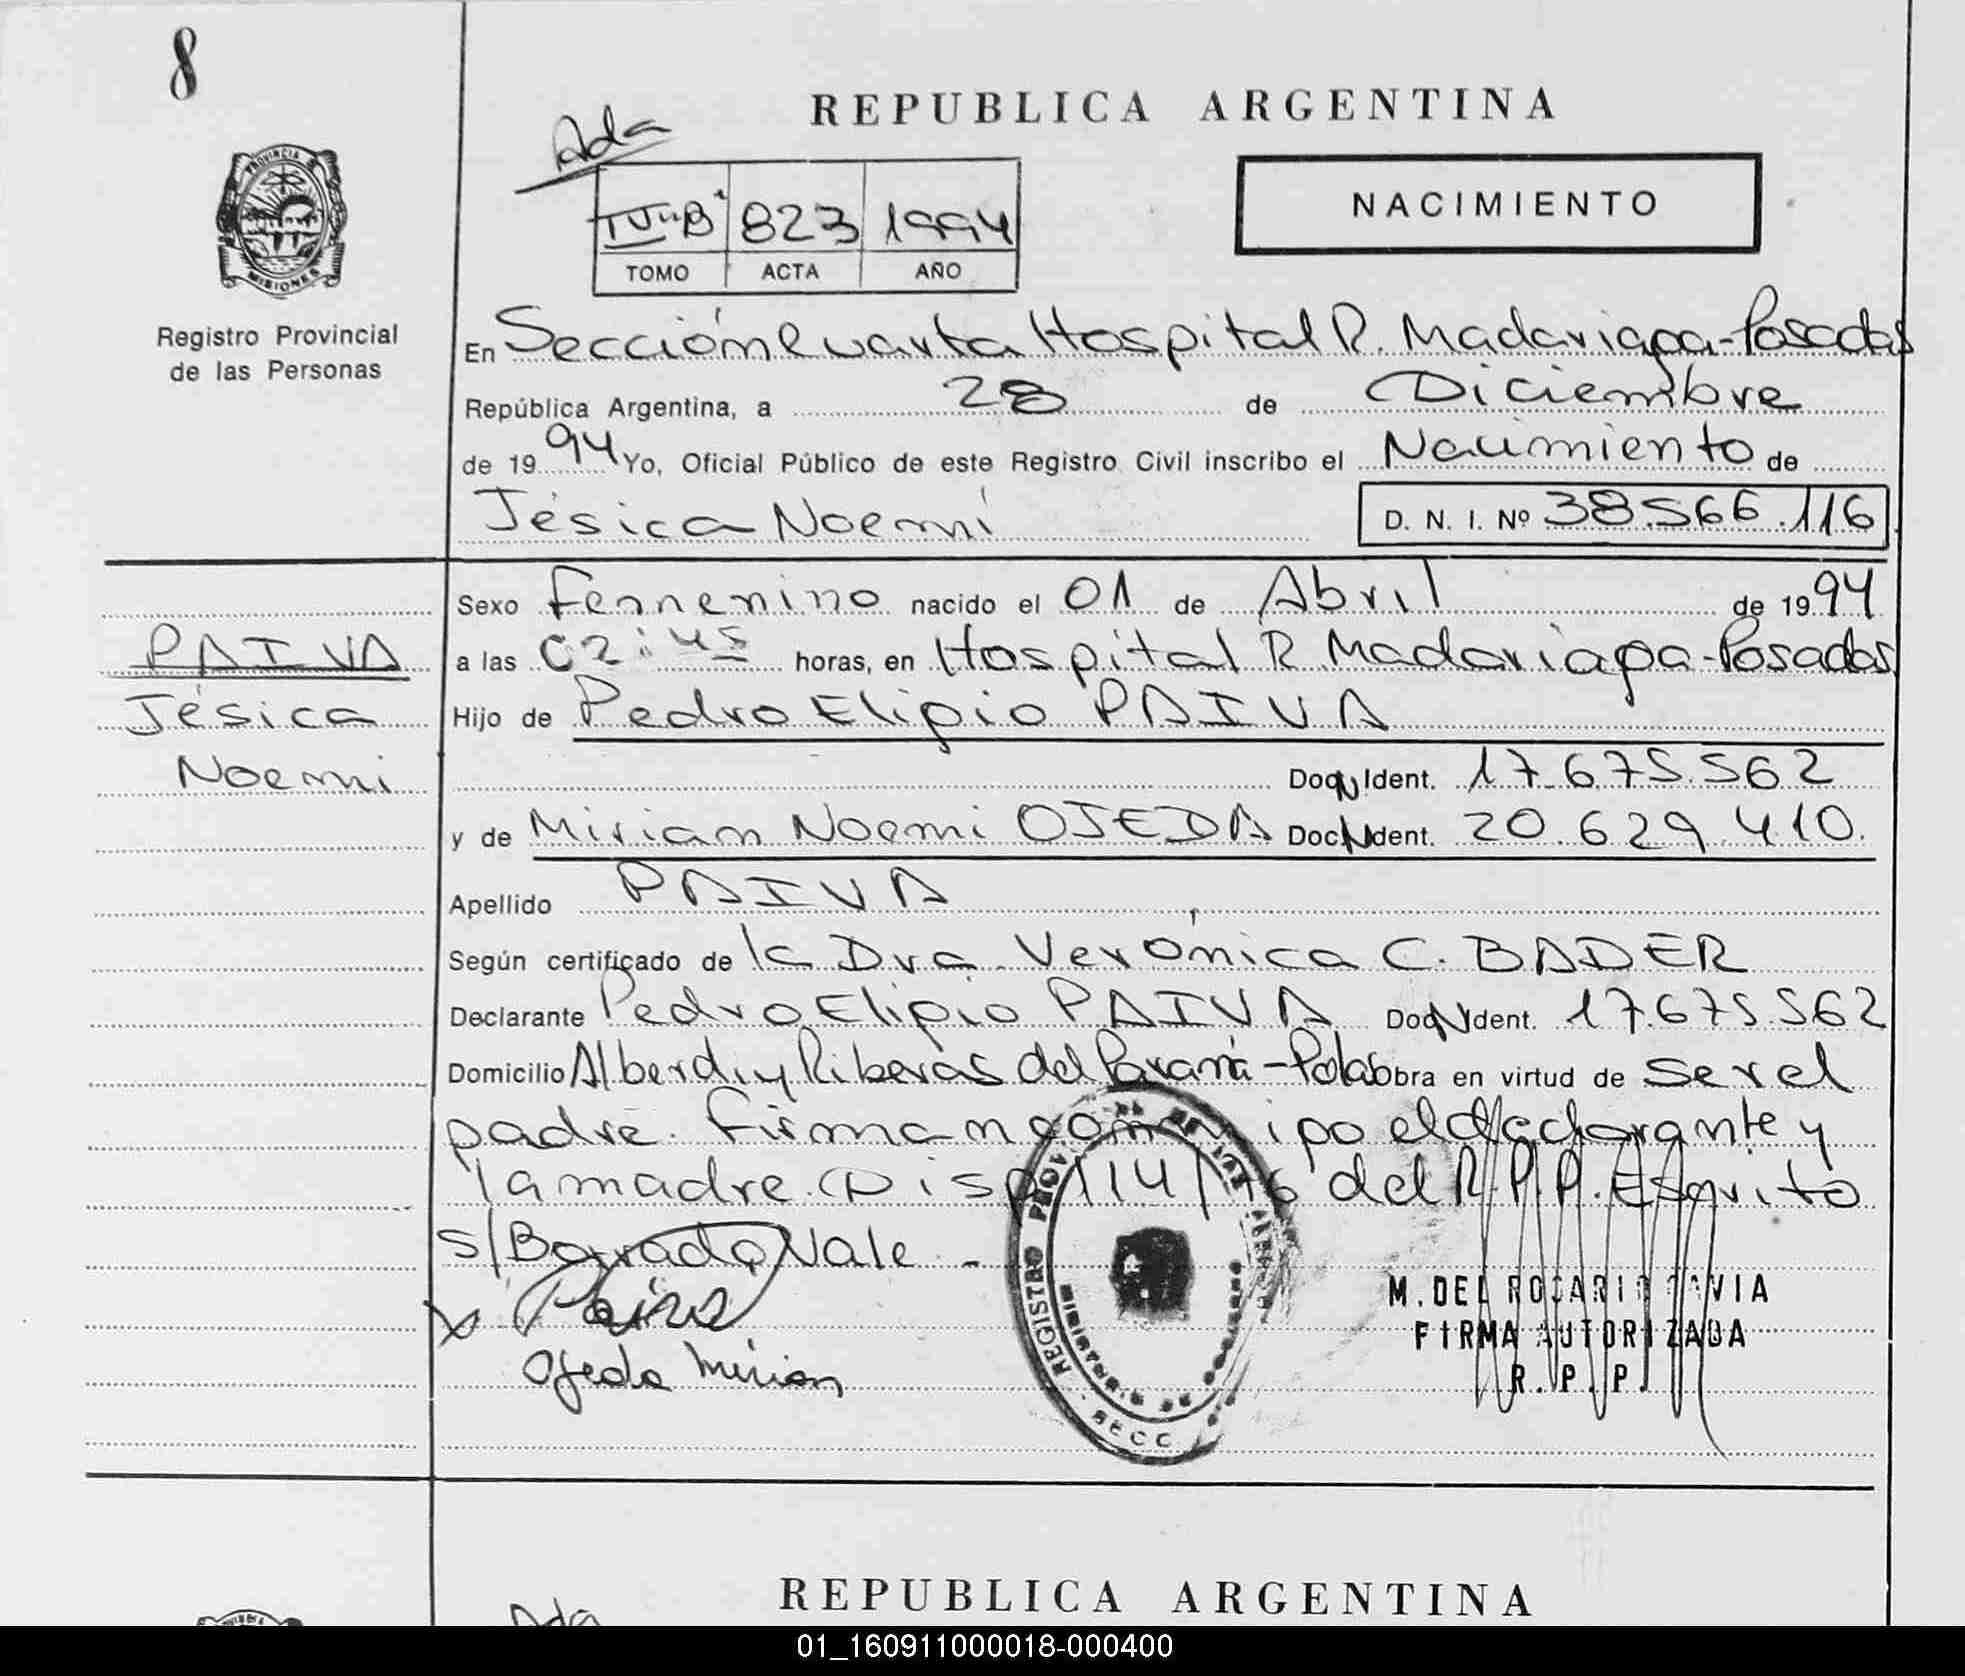 8
REPUBLICA ARGENTINA
Ada
NACIMIENTO
823 1994
TOMO ACTA AÑO
PROVINCIA D MISIONES
Registro Provincial
de las Personas
En Sección Cuarta Hospital R. Madariaga-Posadas
República Argentina, a 28 de Diciembre
de 1994 Yo, Oficial Público de este Registro Civil inscribo el Nacimiento de
Jésica Noemí
D. N. I. Nº 38.566.116
Sexo Femenino nacido el 01 de Abril de 1994
PAIVA
a las 02:45 horas, en Hospital R. Madariaga-Posadas
Jésica
Hijo de Pedro Eligio PAIVA
Noemi
Doc. Ident. 17.675.562
y de Miriam Noemi OJEDA Doc. Ident. 20.629.410.
Apellido PAIVA
Según certificado de la Dra. Verónica C. BADER
Declarante Pedro Eligio PAIVA Doc. Ident. 17.675.562
Domicilio Alberdi y Riberas del Paraná - Pdas obra en virtud de ser el
padre. Firman conmigo el declarante y
la madre. Disp. 114/76 del R.P.P. Escrito
s/Borrado Vale -
Paiva
Ojeda Mirian
REGISTRO PROV
MINISTERIO DE GOBIERNO
SECC
M. DEL ROSARIO
FIRMA AUTORIZADA
R. P. P.
REPUBLICA ARGENTINA
Ada
01_160911000018-000400